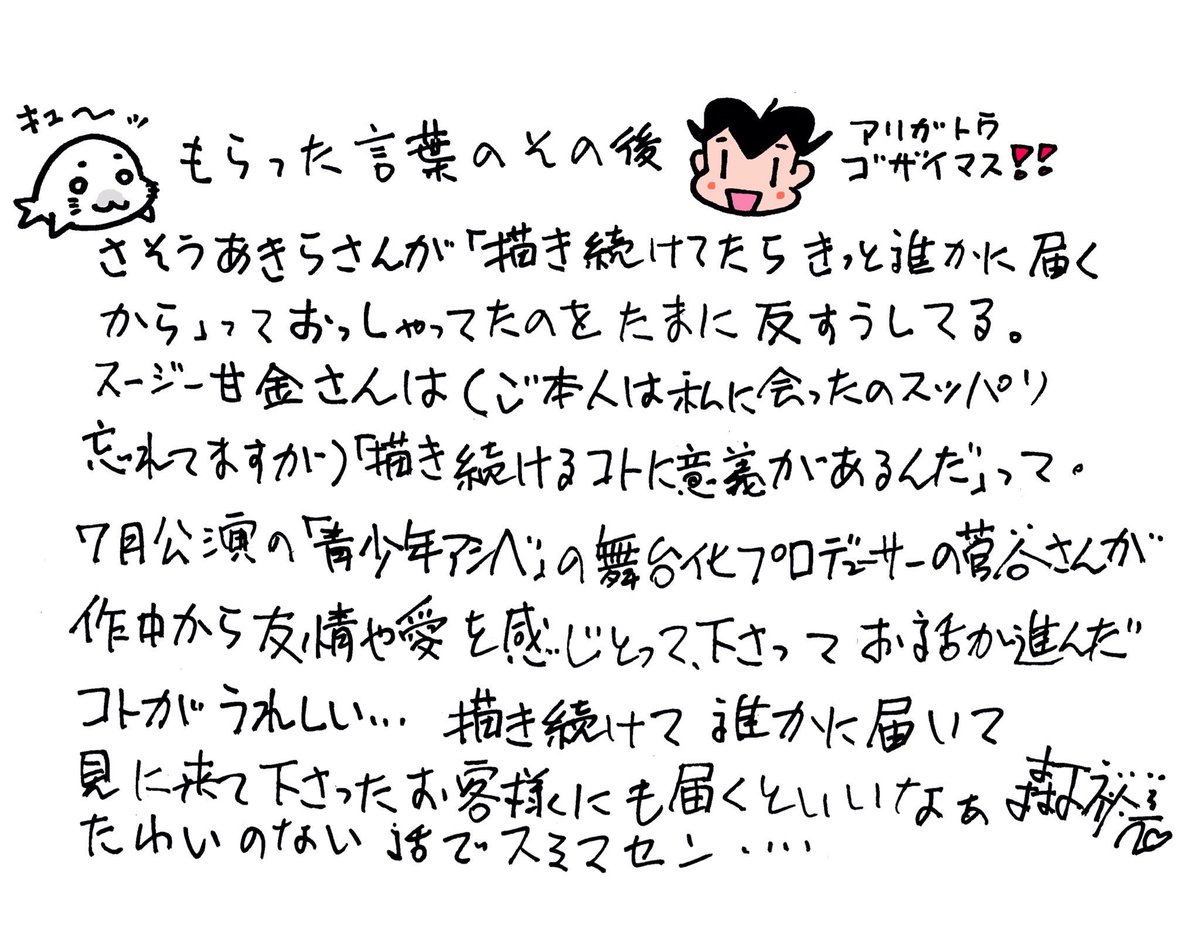 キュ〜ッ
もらった言葉のその後
アリガトウ
ゴザイマス!!
さそうあきらさんが「描き続けてたらきっと誰かに届く
から」っておっしゃってたのをたまに反すうしてる。
スージー甘金さんは(ご本人は私に会ったのスッパリ
忘れてますが)「描き続けるコトに意義があるんだ」って。
7月公演の「青少年アシベ」の舞台化プロデューサーの菅谷さんが
作中から友情や愛を感じとって、下さってお話が進んだ
コトがうれしい… 描き続けて誰かに届いて
見に来て下さったお客様にも届くといいなぁ
たわいのない話でスミマセン‥‥